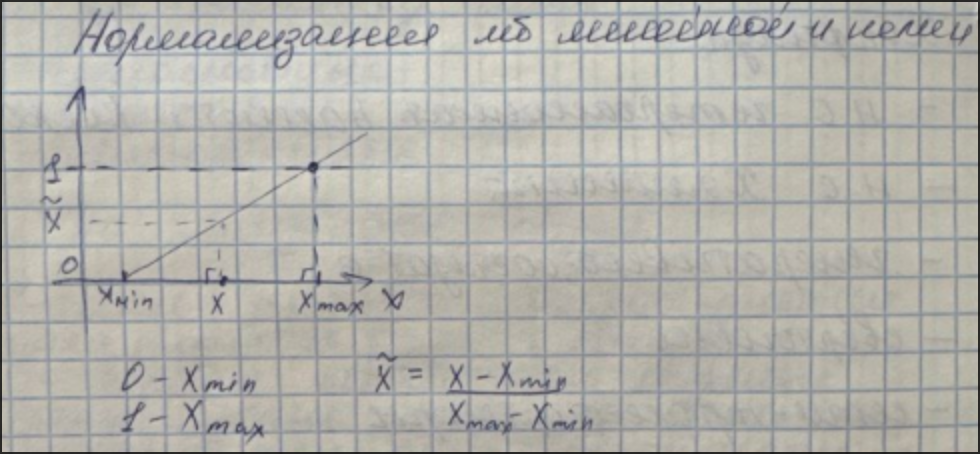 Нормализация мб линейной и нелин
1
x̃
0
x min x x max x
0 - x min x̃ = x - x min
1 - x max x max - x min